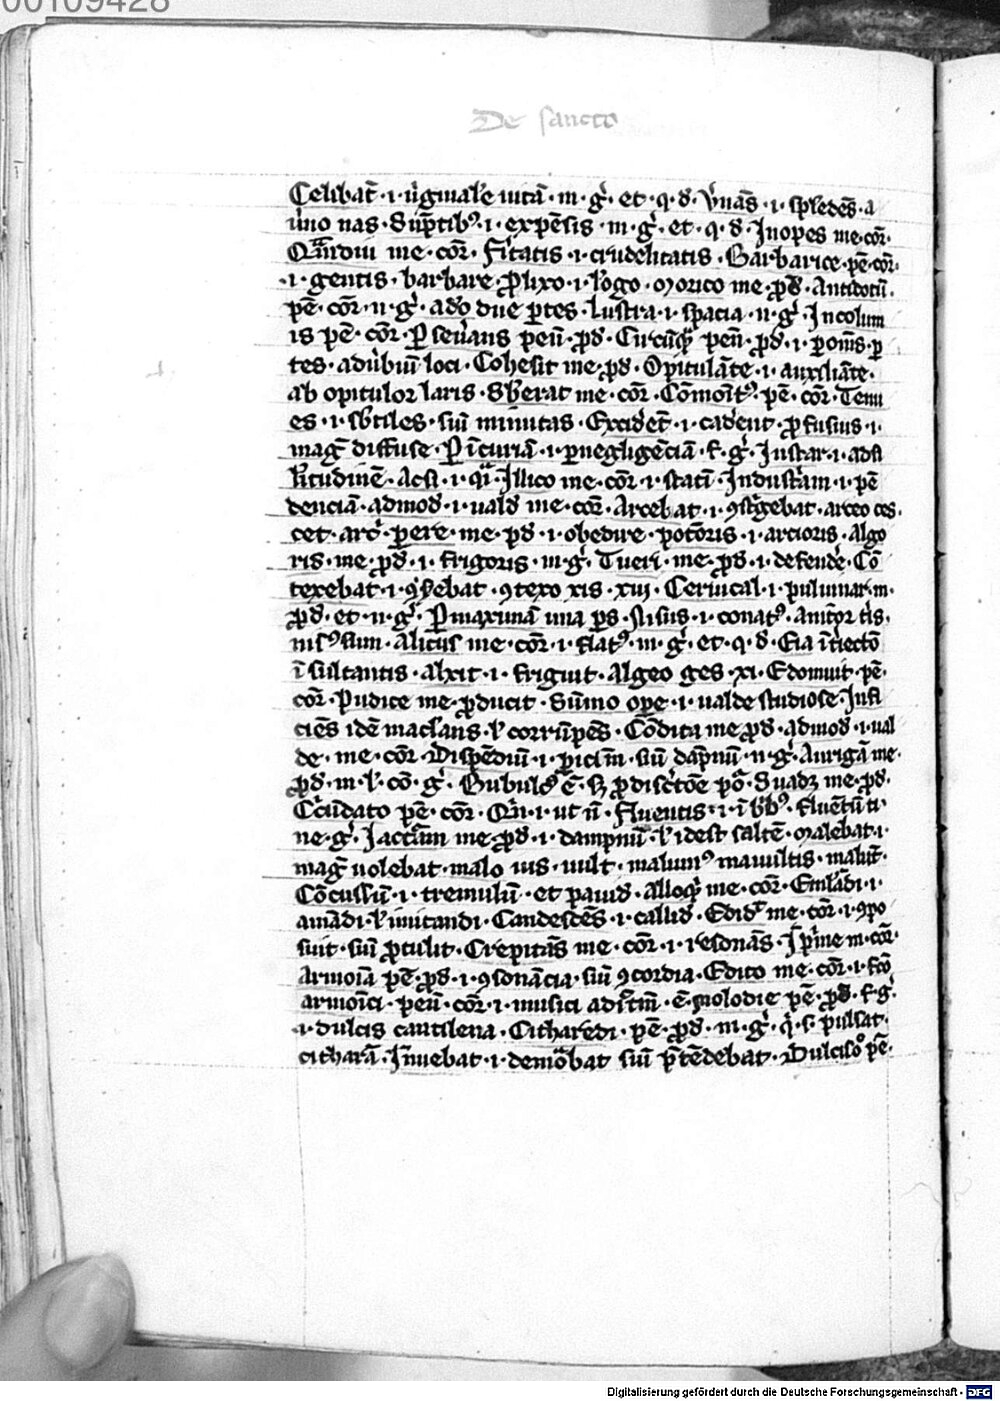 00109428
De sancto
Celibat᷒ · i · ũginale uitā · m · g᷒ · et · q · d · v᷒nās · i · splēdēs · a
uno nas · Sūptib⁹ · i · expēsis · m · g᷒ · et · q · d · Inopes me · cor̄ ·
Quādiu me · cor̄ · Fitatis · i · crudelitatis · Barbarice · pē · cor̄ ·
· i · gentis · barbare · prolixo · i · lōgo · Morico me · ꝓd · Antidotū ·
pē · cor̄ · n · g᷒ · ado due ꝑtes · Lustra · i · spacia · n · g᷒ · Incolum
is pē · cor̄ · Ꝑseuans peñ · ꝓd · Circūq᷒ peñ · ꝓd · i · ꝑ oms · ꝑ
tes · adūbiū loci · Cohesit me · ꝓd · Opitulāte · i · auxiliāte ·
ab opitulor laris · Sbẽrat me · cor̄ · Cōmoīt⁹ · pē · cor̄ · Tenu
es · i · sbtiles · siū minutas · Excidēt · i · cadent · ꝓfusius · i ·
mag̃ diffuse · Ꝑ īcuriā · i · ꝑ negligēciā · f · g᷒ · Instar · i · ad si
litudinē · Acsi · i · qi · Illico me · cor̄ · i · statī · Industam · i · pē
denciā · admod · i · uald me · cor̄ · Arcebat · i · ꝯstgebat · arceo ces ·
cet · arc᷒ · ꝑere · me · ꝓd · i · obedire · potōris · i · arcioris · Algo
ris · me · ꝓd · i · frigoris · m · g᷒ · Tueri · me · ꝓd · i · defende · Cō
texebat · i · ꝯplebat · ꝯtexo xis · xui · Ceruical · i · puluinar · m ·
ꝓd · et · n · g᷒ · Ꝑ maxumā una ꝑs · Nisus · i · conat⁹ · Anitor tis ·
nis⁹ sum · Alicuis me · cor̄ · i · flat⁹ · m · g᷒ · et · q · d · Eia īiectō
ī sultantis · Alxit · i · friguit · Algeo ges · xi · Edomuit · pē ·
cor̄ · Pudice me · ꝓducit · Sūmo ope · i · ualde studiose · Infi
ciēs idē maclans · l᷒ corrūpēs · Cōdita me ꝓd · admod · i · ual
de · me · cor̄ · Dispēdiū · i · ꝑiclm̄ · siū dāpnū · n · g᷒ · Aurigā me ·
ꝓd · m · l᷒ · cō · g᷒ · Bubulc⁹ ē · Sꝫ ꝓ disctōe pō · Suadꝫ me · ꝓd ·
Cc̄udato pē · cor̄ · Qn̄ · i · ut n̄ · Fluentis · i · ī bb⁹ · fluentū ti ·
ne · g᷒ · Iactām me ꝓd · i · dampnū · l᷒ idest saltē · Malebat · i ·
mag̃ uolebat · malo uis · uult · malum⁹ mauultis · malūt ·
Cōcussū · i · tremulū · et pauid · Alloq᷒ me · cor̄ · Emlādi · i ·
amādi · l᷒ imitandi · Candescēs · i · callid · Edid᷒ me · cor̄ · i · ꝯpo
suit · siū ꝓtulit · Crepitās me · cor̄ · i · resonās · Īpme m · cor̄ ·
Armoīa pē · ꝓd · i · ꝯsonācia · siū ꝯcordia · Edito me · cor̄ · i · fcō
armoīci · peñ · cor̄ · i · musici adstm̄ · ē · Molodie pē · ꝓd · f · g᷒ ·
· i · dulcis cantilena · Citharedi · pē · ꝓd · m · g᷒ · q · s · pulsat ·
citharā · Inuebat · i · demōbat siū ꝑtēdebat · Dulcisō pē ·
Digitalisierung gefördert durch die Deutsche Forschungsgemeinschaft - DFG